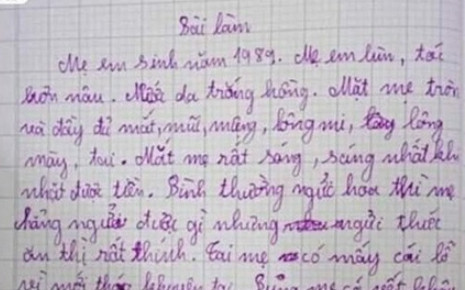 Bài làm
Mẹ em sinh năm 1989. Mẹ em lùn, tóc
hơn nâu. Màu da trắng hồng. Mặt mẹ tròn
và đầy đủ mắt, mũi, miệng, lông mi, lông
mày, tai. Mắt mẹ rất sáng, sáng nhất khi
nhặt được tiền. Bình thường ngửi hoa thì mẹ
chẳng ngửi được gì nhưng ngửi thức
ăn thì rất thính. Tai mẹ có mấy cái lỗ
vì mới tháo khuyên tai. mẹ có nốt